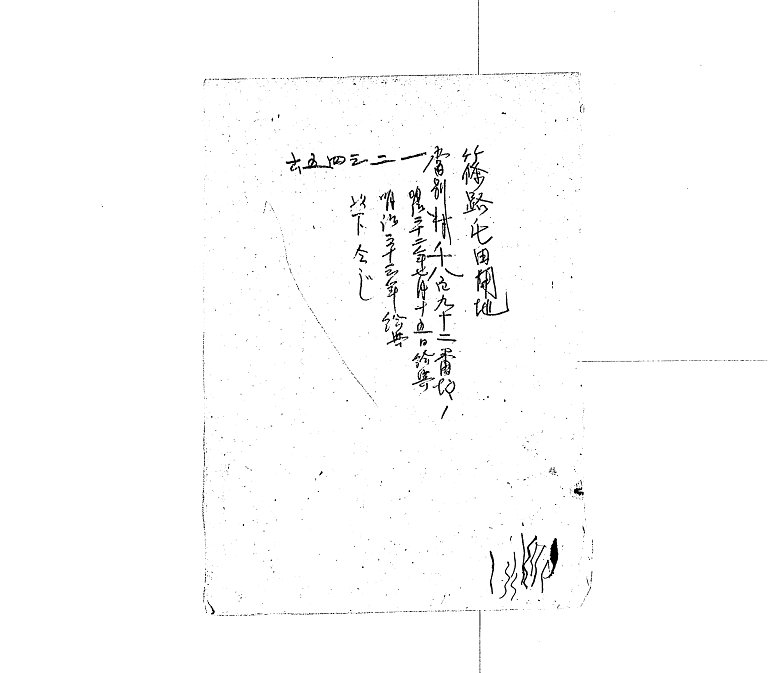 篠路屯田開地
當別村千八百九十二番地ノ
一二三四五六
明治三十二年七月十五日給與
明治三十三年給與
以下仝じ